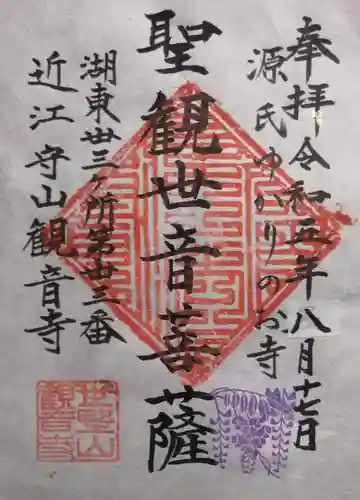 奉拝令和五年八月十七日
源氏ゆかりのお寺
聖観世音菩薩
湖東廿三ヶ所第廿三番
近江守山観音寺